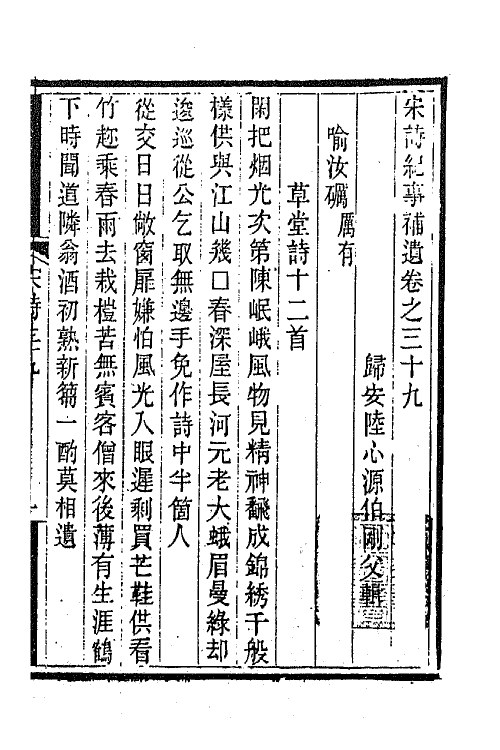 宋詩紀事補遺卷之三十九
歸安陸心源伯剛父輯
喻汝礪厲有
草堂詩十二首
閑把烟光次第陳岷峨風物見精神飜成錦綉千般
樣供與江山幾口春深屋長河元老大蛾眉曼綠却
逡巡從公乞取無邊手免作詩中半箇人
從交日日敞窗扉嫌怕風光入眼遲剩買芒鞋供看
竹趂乘春雨去栽榿苦無賓客僧來後薄有生涯鶴
下時聞道隣翁酒初熟新篘一酌莫相遺
宋詩三九